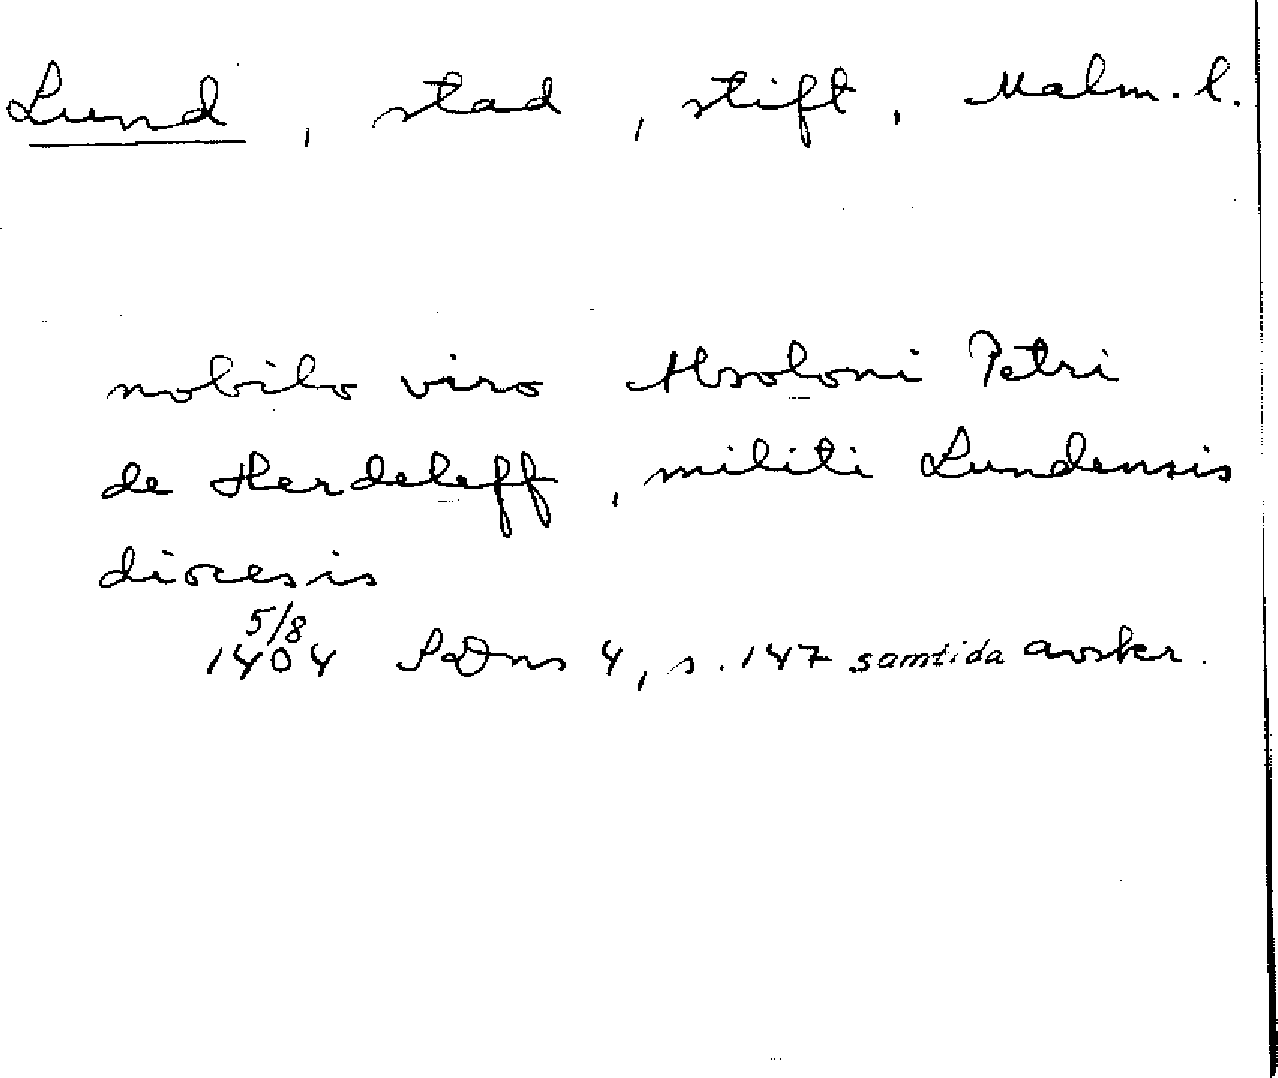 Lund, stad, stift, Malm. l.
nobilo viro Absoloni Petri
de Herdeleff, militi Lundensis
diocesis
5/8
1404 SDns 4, s. 147 samtida avskr.